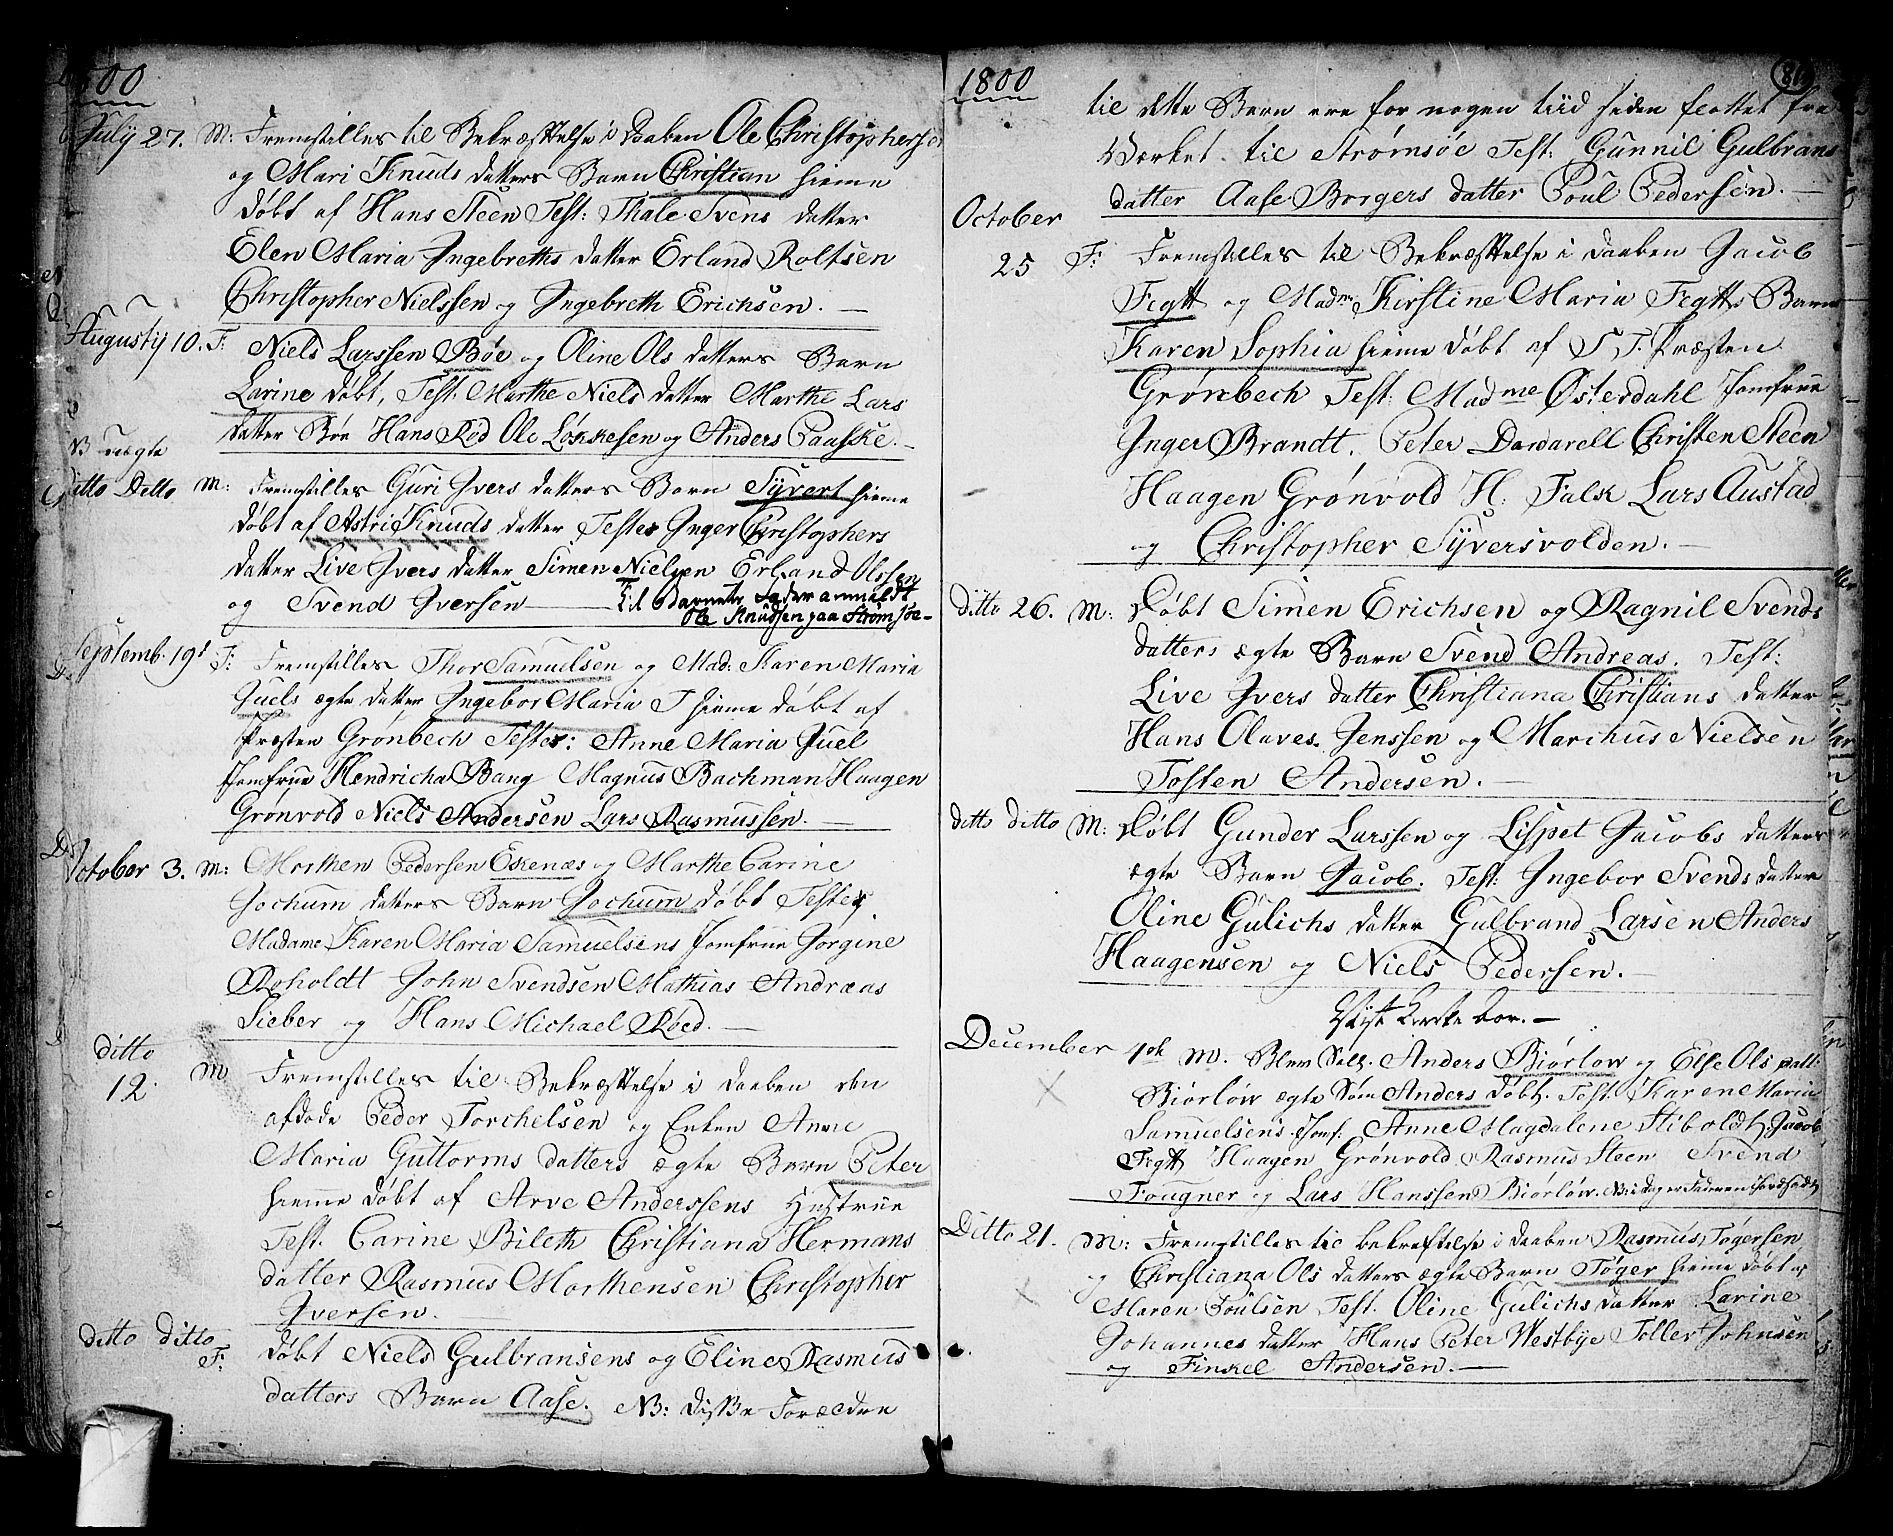 1800
July 27. M: Fremstilles til Bekræftelse i Daaben Ole Christophersen
og Mari Knuds datters Barn Christian hieme
døbt af Hans Steen Test: Thale Svens datter
Elen Maria Ingebreths datter Erland Roltsen
Christopher Nielssen og Ingebreth Erichsen.
Augusty 10. F: Niels Larssen Bøe og Oline Ols datters Barn
Larine døbt, Test: Marthe Niels datter Marthe Lars
datter Bøe Hans Rød Ole Løkkesen og Anders Paaske.
uægte
Ditto Ditto M: Fremstilles Guri Ivers datters Barn Syvert hieme
døbt af Astri Knuds datter Testes Inger Christophers
datter Live Ivers datter Simen Nielsen Erland Olssen
og Svend Iversen Til Barnets Fader anmeldt
Ole Knudsen paa Strømsøe
Septemb. 19d F: Fremstilles Thor Samuelsen og Mad: Karen Maria
Juels ægte datter Ingebor Maria hieme døbt af
Præsten Grønbech Testes: Anne Maria Juel
Jomfrue Hendricha Bang Magnus Bachman Haagen
Grønvold Niels Andersen Lars Rasmussen.
October 3. M: Morthen Pedersen Eskenæs og Marthe Carine
Jochum datters Barn Jochum døbt Testes
Madame Karen Maria Samuelsens Jomfrue Jorgine
Roholdt John Svendsen Mathias Andreas
Sieber og Hans Michael Røed.
ditto
12. M Fremstilles til Bekræftelse i daaben den
afdøde Peder Torchelsen og Enken Anne
Maria Guttorms datters ægte Barn Peter
hieme døbt af Arve Anderssens Hustrue
Test. Carine Bileth Christiana Hermans
datter Rasmus Morthensen Christopher
Iversen.
ditto ditto F: døbt Niels Gulbransens og Eline Rasmus
datters Barn Aase. NB: disse Forældre
1800
til dette Barn ere for nogen tiid siden flottet fra
Værket til Strømsøe Test: Gunnil Gulbrans
datter Aase Borgers datter Poul Pedersen.
October
25 F: Fremstilles til Bekræftelse i daaben Jacob
Frgtt og Madme Kirstine Maria Frgtts Barn
Karen Sophia hieme døbt af S T. Præsten
Grønbech Test: Madme Østerdahl Jomfrue
Inger Brandt. Peter Dardarell Christen Steen
Haagen Grønvold H: Falck Lars Austad
og Christopher Syversvolden.
Ditto 26. M: Døbt Simen Erichsen og Ragnil Svends
datters ægte Barn Svend Andreas. Test:
Live Ivers datter Christiana Christians datter
Hans Olaves Jenssen og Marchus Nielsen
Tosten Andersen.
ditto ditto M: Døbt Gunder Larssen og Lispet Jacobs datters
ægte Barn Jacob. Test: Ingebor Svends datter
Oline Gulichs datter Gulbrand Larsen Anders
Haagensen og Niels Pedersen.
December M. Blev Anders Biørløw og Else Ols datt.
Biørløw ægte Søn Anders døbt. Test. Karen Maria
Samuelsens. Jomf: Anne Magdalene Stiboldt, Jacob
Frgtt Haagen Grønvold Rasmus Steen Svend
Fougner og Lars Hanssen Biørløw.
Ditto 21. M: Fremstilles til bekræftelse i daaben Rasmus Tøgersen
og Christiana Ols datters ægte Barn Tøger hieme døbt af
Maren Poulsen Test. Oline Gulichs datter Larine
Johannes datter Hans Peter Westbye Toller Johnsen
og Finkel Andersen.